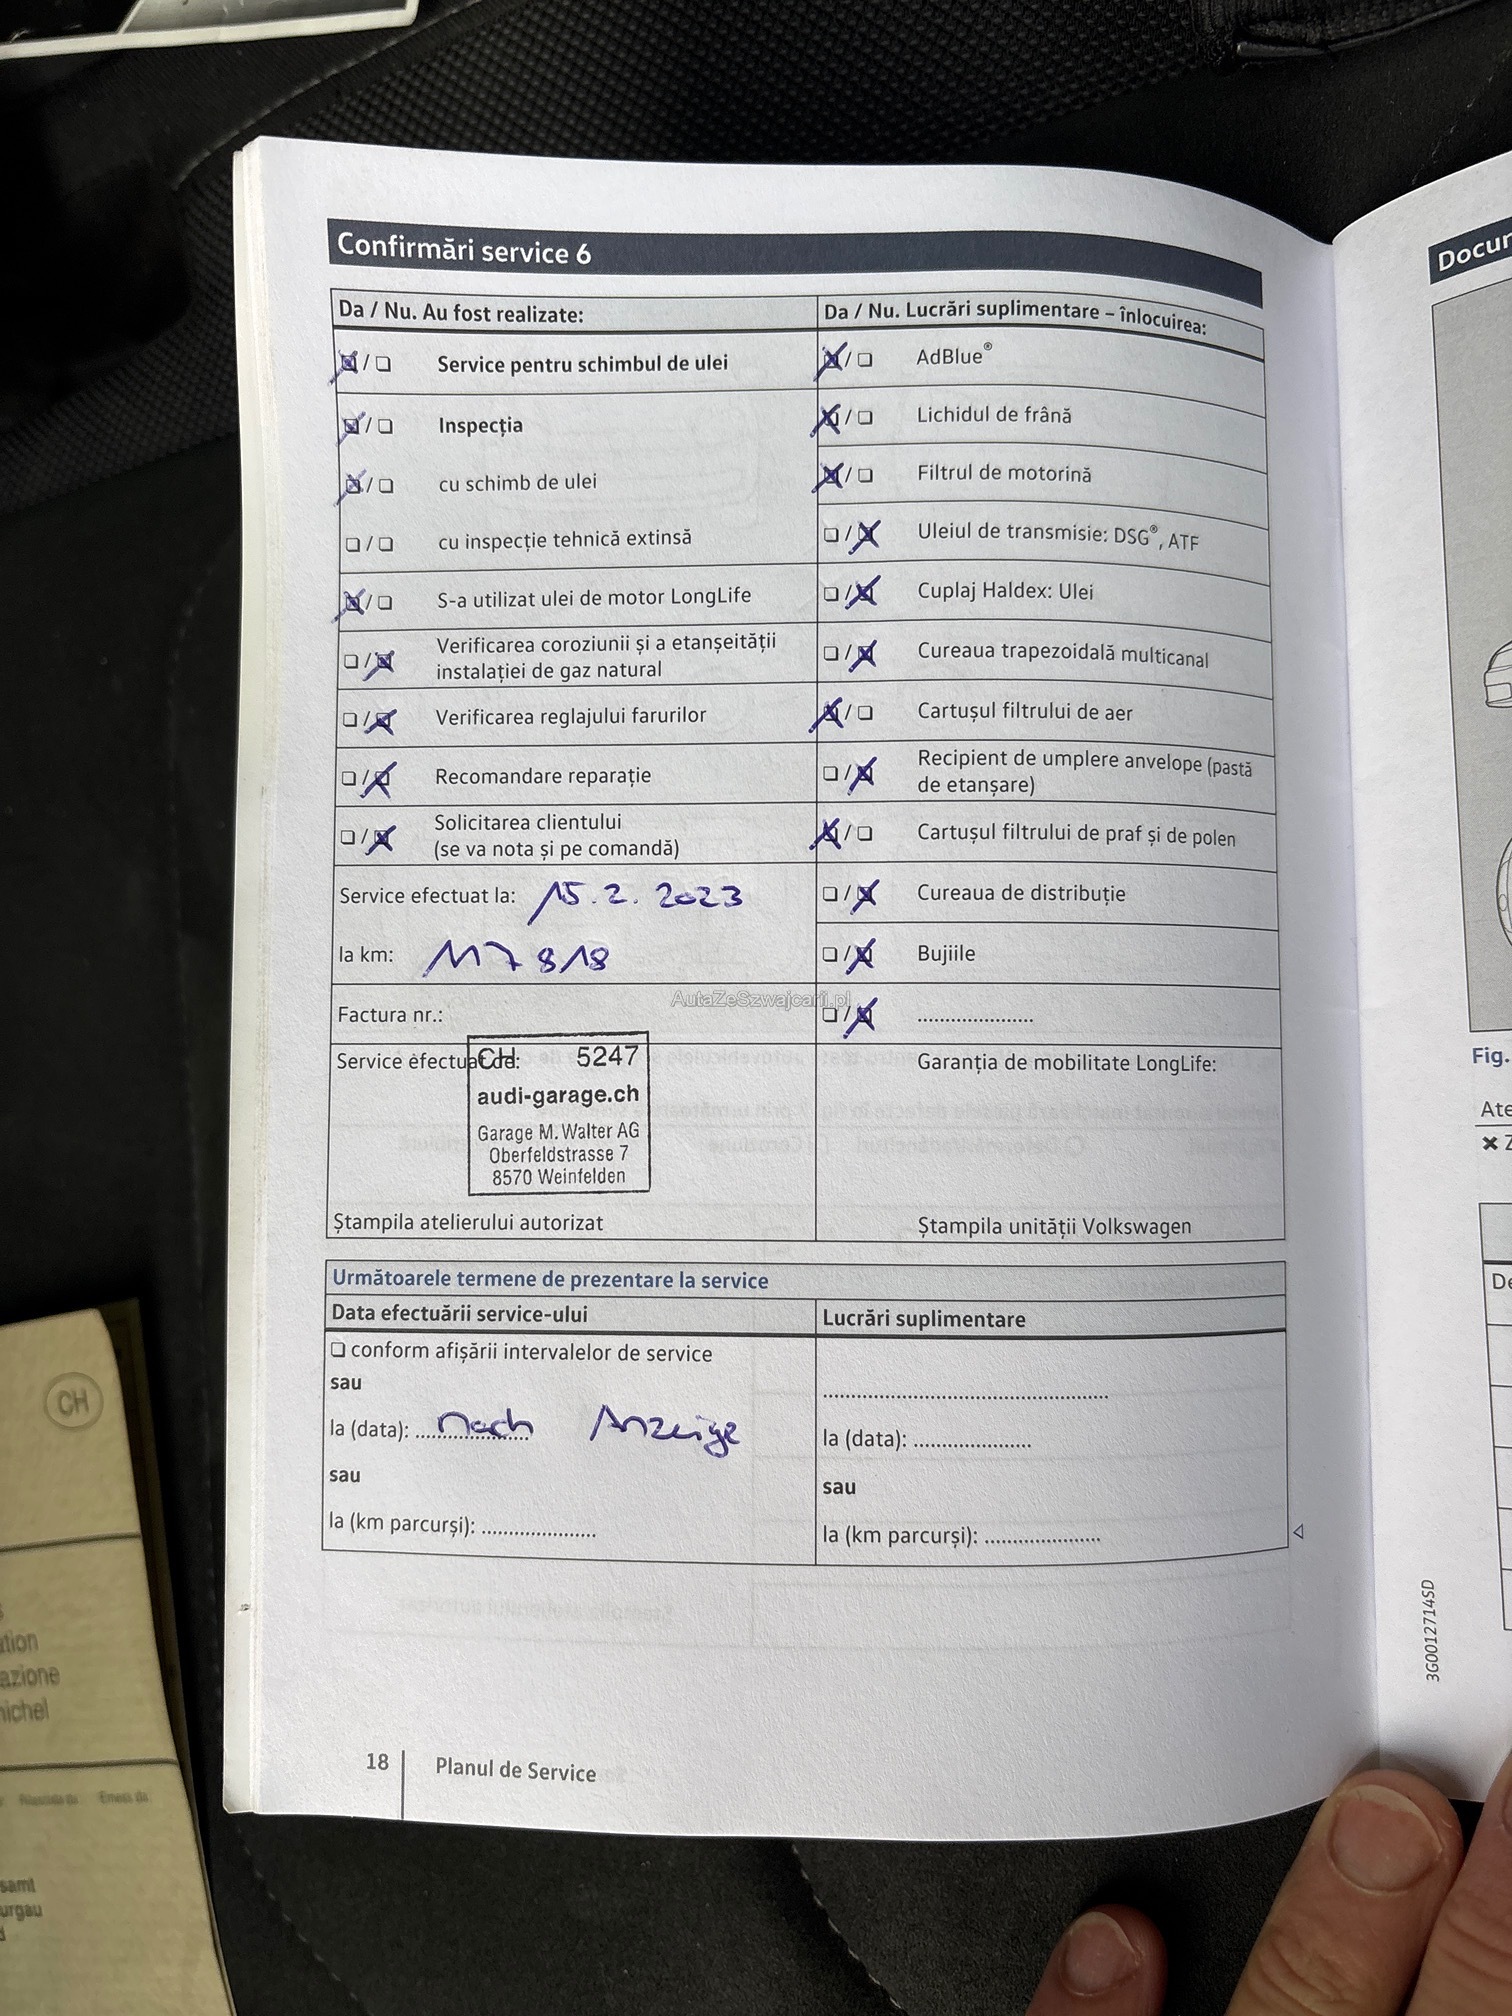 Confirmări service 6
Da / Nu. Au fost realizate:
☒ / ☐ Service pentru schimbul de ulei
☒ / ☐ Inspecția
☒ / ☐ cu schimb de ulei
☐ / ☐ cu inspecție tehnică extinsă
☒ / ☐ S-a utilizat ulei de motor LongLife
☐ / ☒ Verificarea coroziunii și a etanșeității
instalației de gaz natural
☐ / ☒ Verificarea reglajului farurilor
☐ / ☒ Recomandare reparație
☐ / ☒ Solicitarea clientului
(se va nota și pe comandă)
Service efectuat la: 15.2.2023
la km: 117 818
Factura nr.:
Service efectuat de:
CH 5247
audi-garage.ch
Garage M. Walter AG
Oberfeldstrasse 7
8570 Weinfelden
Ștampila atelierului autorizat
Da / Nu. Lucrări suplimentare – înlocuirea:
☒ / ☐ AdBlue®
☒ / ☐ Lichidul de frână
☒ / ☐ Filtrul de motorină
☐ / ☒ Uleiul de transmisie: DSG®, ATF
☐ / ☒ Cuplaj Haldex: Ulei
☐ / ☒ Cureaua trapezoidală multicanal
☒ / ☐ Cartușul filtrului de aer
☐ / ☒ Recipient de umplere anvelope (pastă
de etanșare)
☒ / ☐ Cartușul filtrului de praf și de polen
☐ / ☒ Cureaua de distribuție
☐ / ☒ Bujiile
☐ / ☒ .....................
Garanția de mobilitate LongLife:
Ștampila unității Volkswagen
AutaZeSzwajcarii.pl
Următoarele termene de prezentare la service
Data efectuării service-ului
☐ conform afișării intervalelor de service
sau
la (data): nach Anzeige
sau
la (km parcurși): .....................
Lucrări suplimentare
.....................
la (data): .....................
sau
la (km parcurși): .....................
18 Planul de Service
Docur
Fig.
Ate
✖ Z
De
3G0012714SD
CH
ation
azione
nichel
samt
urgau